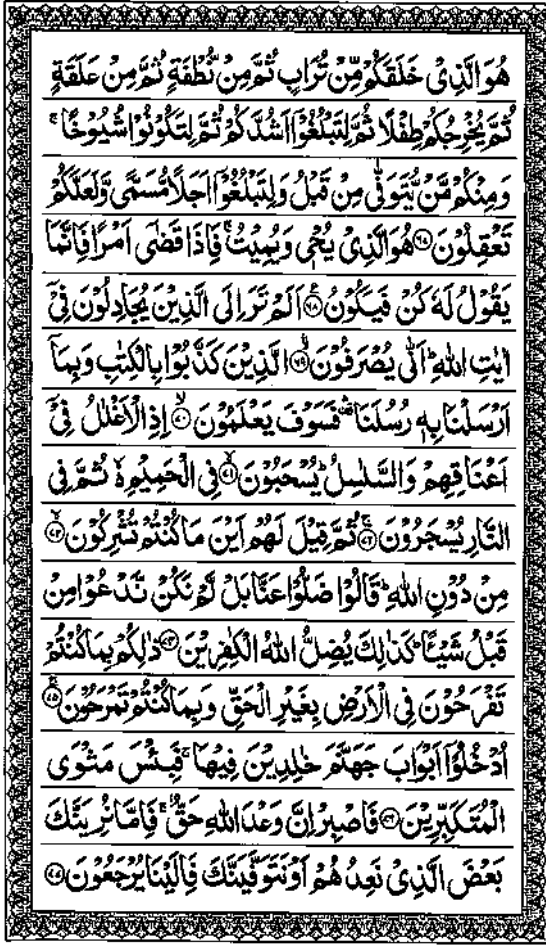 هُوَ الَّذِىْ خَلَقَكُمْ مِّنْ تُرَابٍ ثُمَّ مِنْ نُّطْفَةٍ ثُمَّ مِنْ عَلَقَةٍ
ثُمَّ يُخْرِجُكُمْ طِفْلًا ثُمَّ لِتَبْلُغُوْۤا اَشُدَّكُمْ ثُمَّ لِتَكُوْنُوْا شُيُوْخًا ۚ
وَمِنْكُمْ مَّنْ يُّتَوَفّٰى مِنْ قَبْلُ وَلِتَبْلُغُوْۤا اَجَلًا مُّسَمًّى وَّلَعَلَّكُمْ
تَعْقِلُوْنَ ﴿۶۷﴾ هُوَ الَّذِىْ يُحْىٖ وَيُمِيْتُ ۚ فَاِذَا قَضٰٓى اَمْرًا فَاِنَّمَا
يَقُوْلُ لَهٗ كُنْ فَيَكُوْنُ ﴿۶۸﴾ اَلَمْ تَرَ اِلَى الَّذِيْنَ يُجَادِلُوْنَ فِىْۤ
اٰيٰتِ اللّٰهِ ؕ اَنّٰى يُصْرَفُوْنَ ﴿۶۹﴾ الَّذِيْنَ كَذَّبُوْا بِالْكِتٰبِ وَبِمَاۤ
اَرْسَلْنَا بِهٖ رُسُلَنَا ۛ فَسَوْفَ يَعْلَمُوْنَ ﴿۷۰﴾ اِذِ الْاَغْلٰلُ فِىْۤ
اَعْنَاقِهِمْ وَالسَّلٰسِلُ ؕ يُسْحَبُوْنَ ﴿۷۱﴾ فِى الْحَمِيْمِ ۙ ثُمَّ فِى
النَّارِ يُسْجَرُوْنَ ﴿۷۲﴾ ثُمَّ قِيْلَ لَهُمْ اَيْنَ مَا كُنْتُمْ تُشْرِكُوْنَ ﴿۷۳﴾
مِنْ دُوْنِ اللّٰهِ ؕ قَالُوْا ضَلُّوْا عَنَّا بَلْ لَّمْ نَكُنْ نَّدْعُوْا مِنْ
قَبْلُ شَيْئًا ؕ كَذٰلِكَ يُضِلُّ اللّٰهُ الْكٰفِرِيْنَ ﴿۷۴﴾ ذٰلِكُمْ بِمَا كُنْتُمْ
تَفْرَحُوْنَ فِى الْاَرْضِ بِغَيْرِ الْحَقِّ وَبِمَا كُنْتُمْ تَمْرَحُوْنَ ﴿۷۵﴾
اُدْخُلُوْۤا اَبْوَابَ جَهَنَّمَ خٰلِدِيْنَ فِيْهَا ۚ فَبِئْسَ مَثْوَى
الْمُتَكَبِّرِيْنَ ﴿۷۶﴾ فَاصْبِرْ اِنَّ وَعْدَ اللّٰهِ حَقٌّ ۚ فَاِمَّا نُرِيَنَّكَ
بَعْضَ الَّذِىْ نَعِدُهُمْ اَوْ نَتَوَفَّيَنَّكَ فَاِلَيْنَا يُرْجَعُوْنَ ﴿۷۷﴾